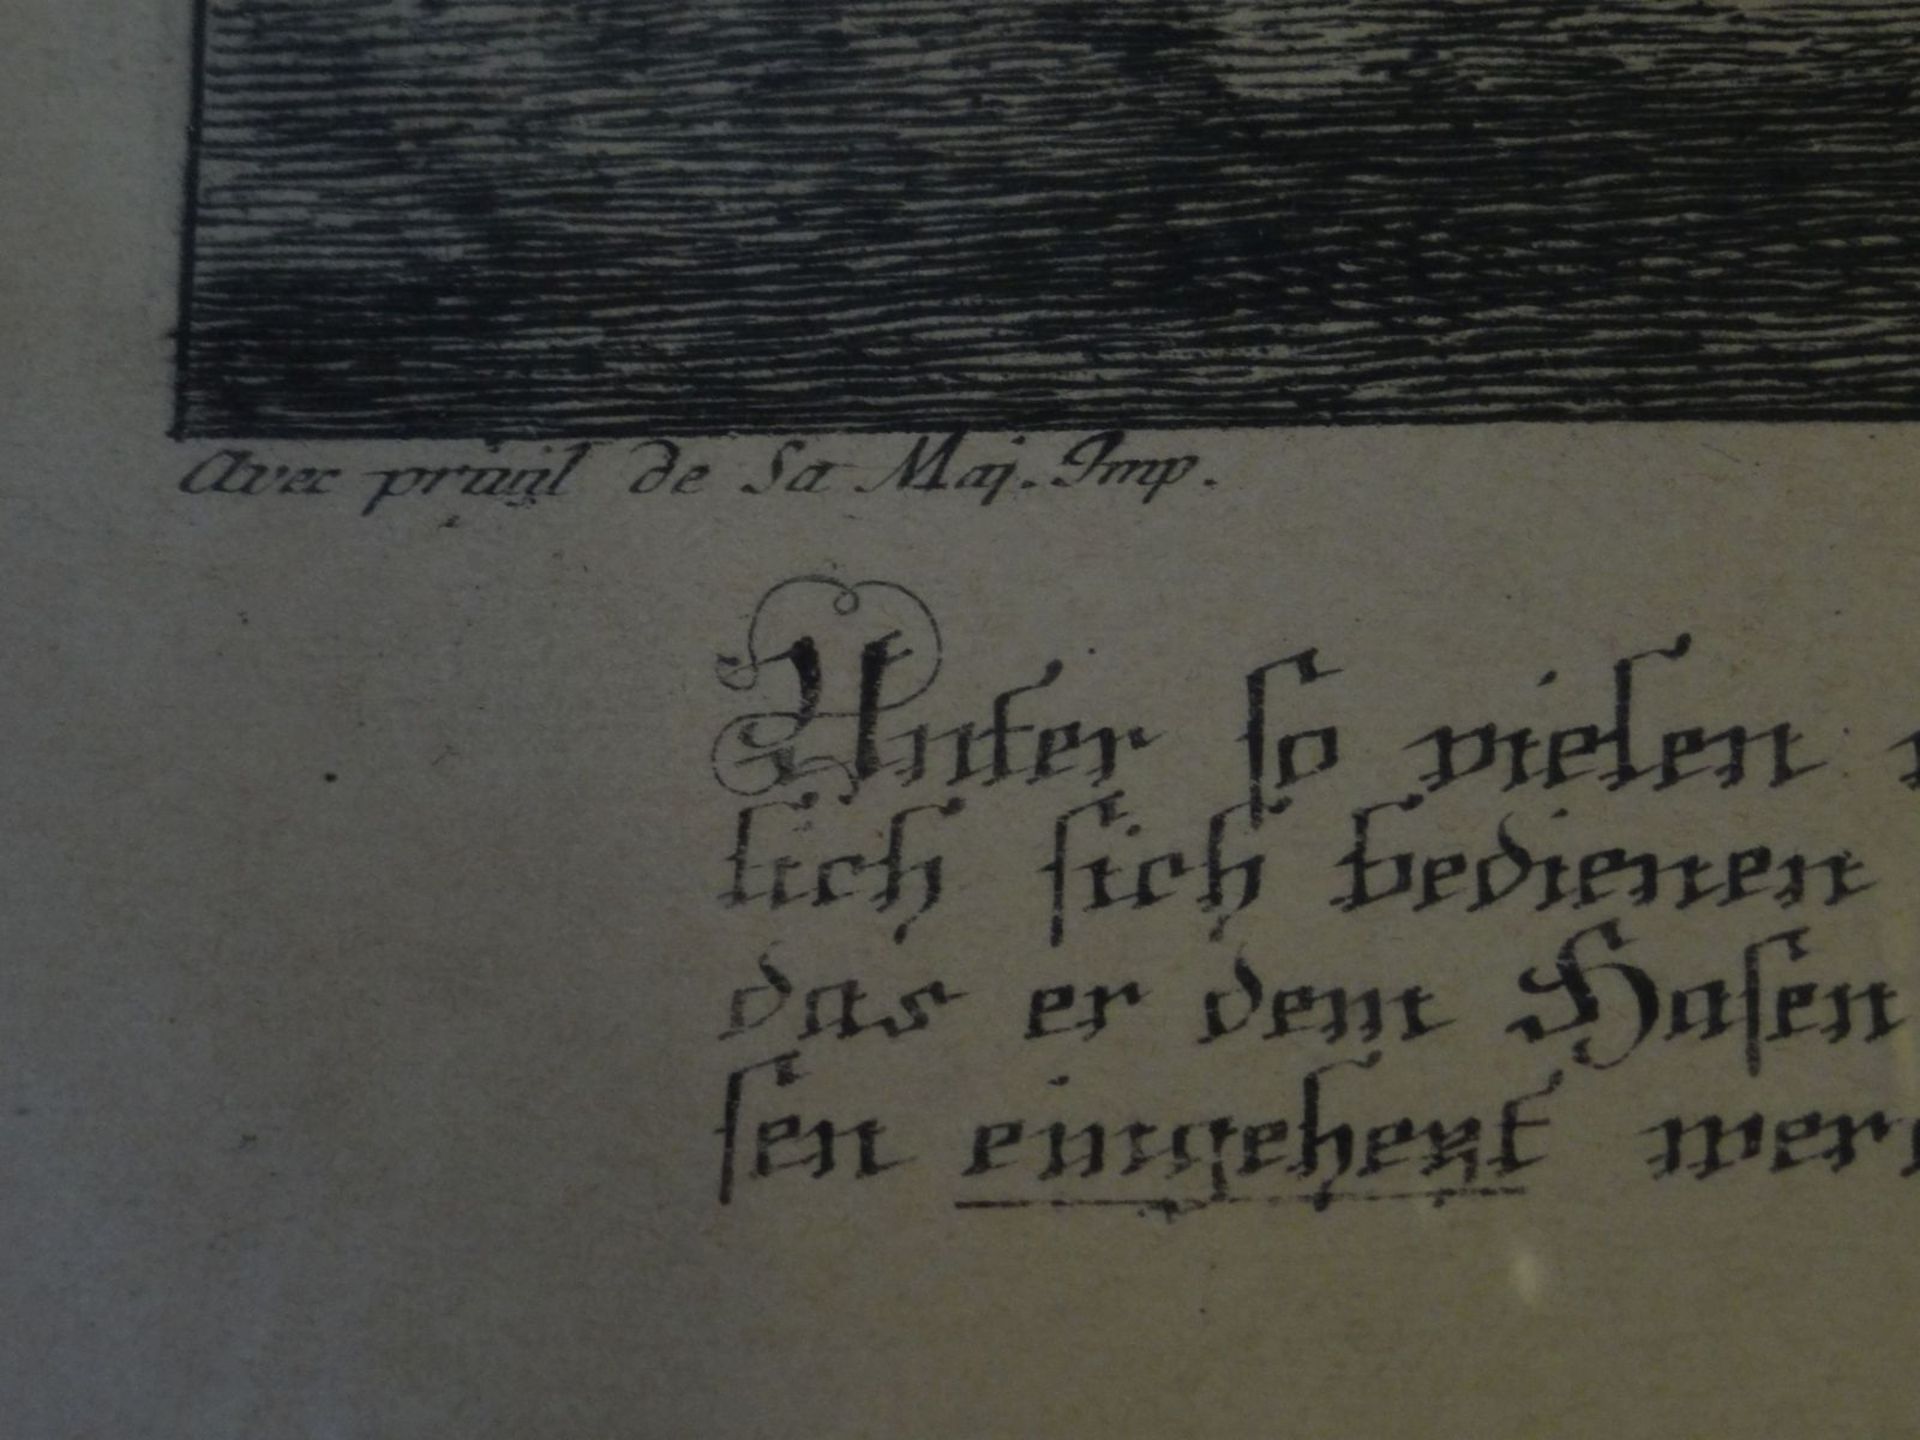 Avec privil de Sa Maj. Imp.
Unter so vielen
lich sich bedienen
das er dem Hasen
sen eingehezt